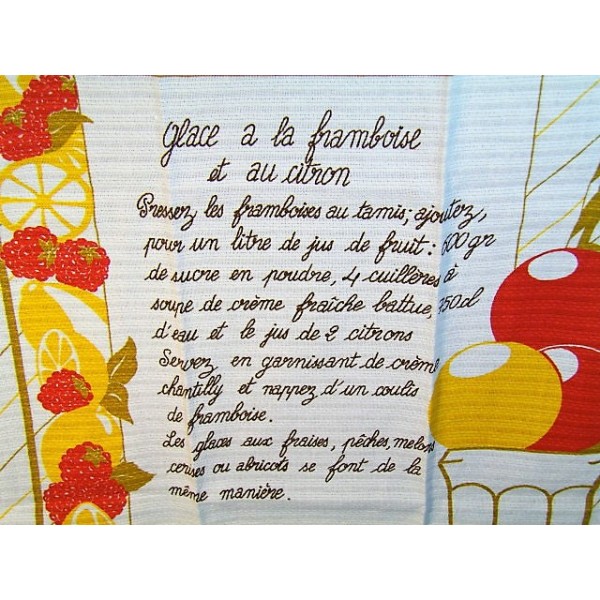 Glace a la framboise
et au citron
Pressez les framboises au tamis; ajoutez,
pour un litre de jus de fruit: 600 gr
de sucre en poudre, 4 cuillères à
soupe de crème fraîche battue, 350 cl
d'eau et le jus de 2 citrons
Servez en garnissant de crème
chantilly et nappez d'un coulis
de framboise.
Les glaces aux fraises, pêches, melons
cerises ou abricots se font de la
même manière.